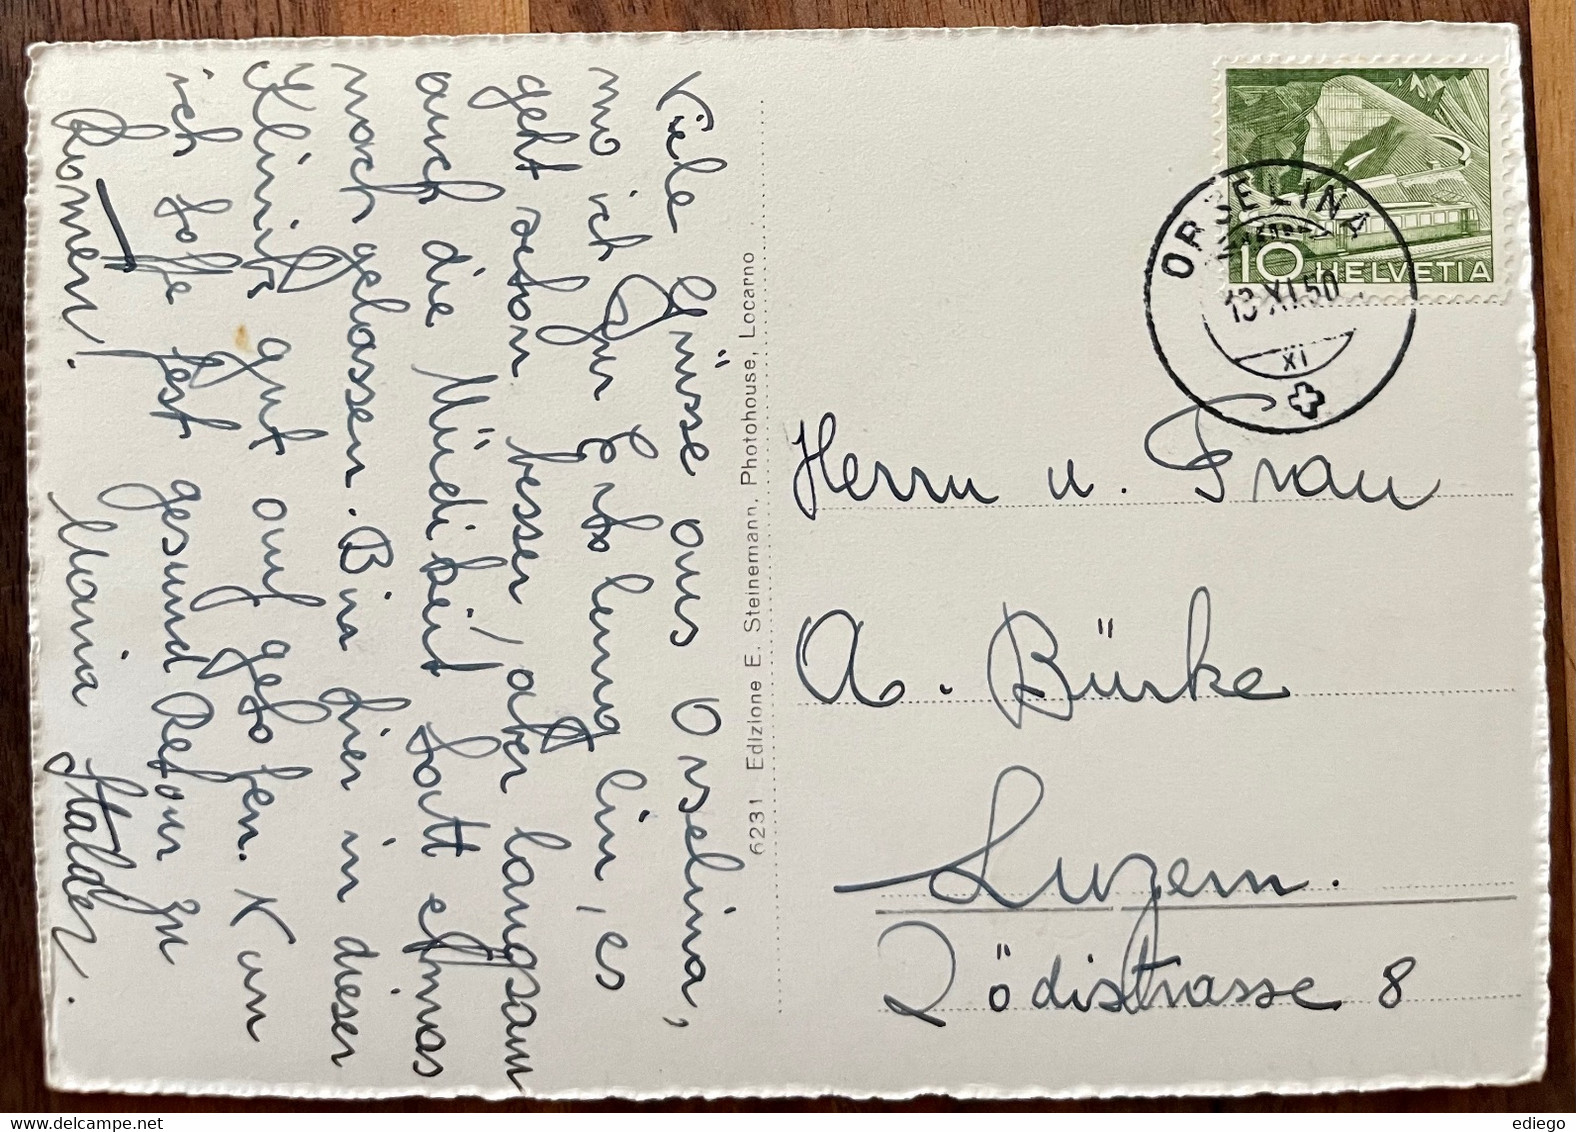 Viele Grüsse aus Orselina,
wo ich zur Erholung bin, es
geht schon besser, aber langsam
auch die Müdikeit hatt etwas
nach gelassen. Bin hier in dieser
Klinik gut auf gehofen. Kan
ich hoffe fest gesund Retour zu
Komen!
Maria Stalder.
6231 Edizione E. Steinemann, Photohouse, Locarno
10 HELVETIA
ORSELINA
13.XI.50
XI
Herrn u. Frau
A. Bürke
Luzern.
Rödistrasse 8
ediego